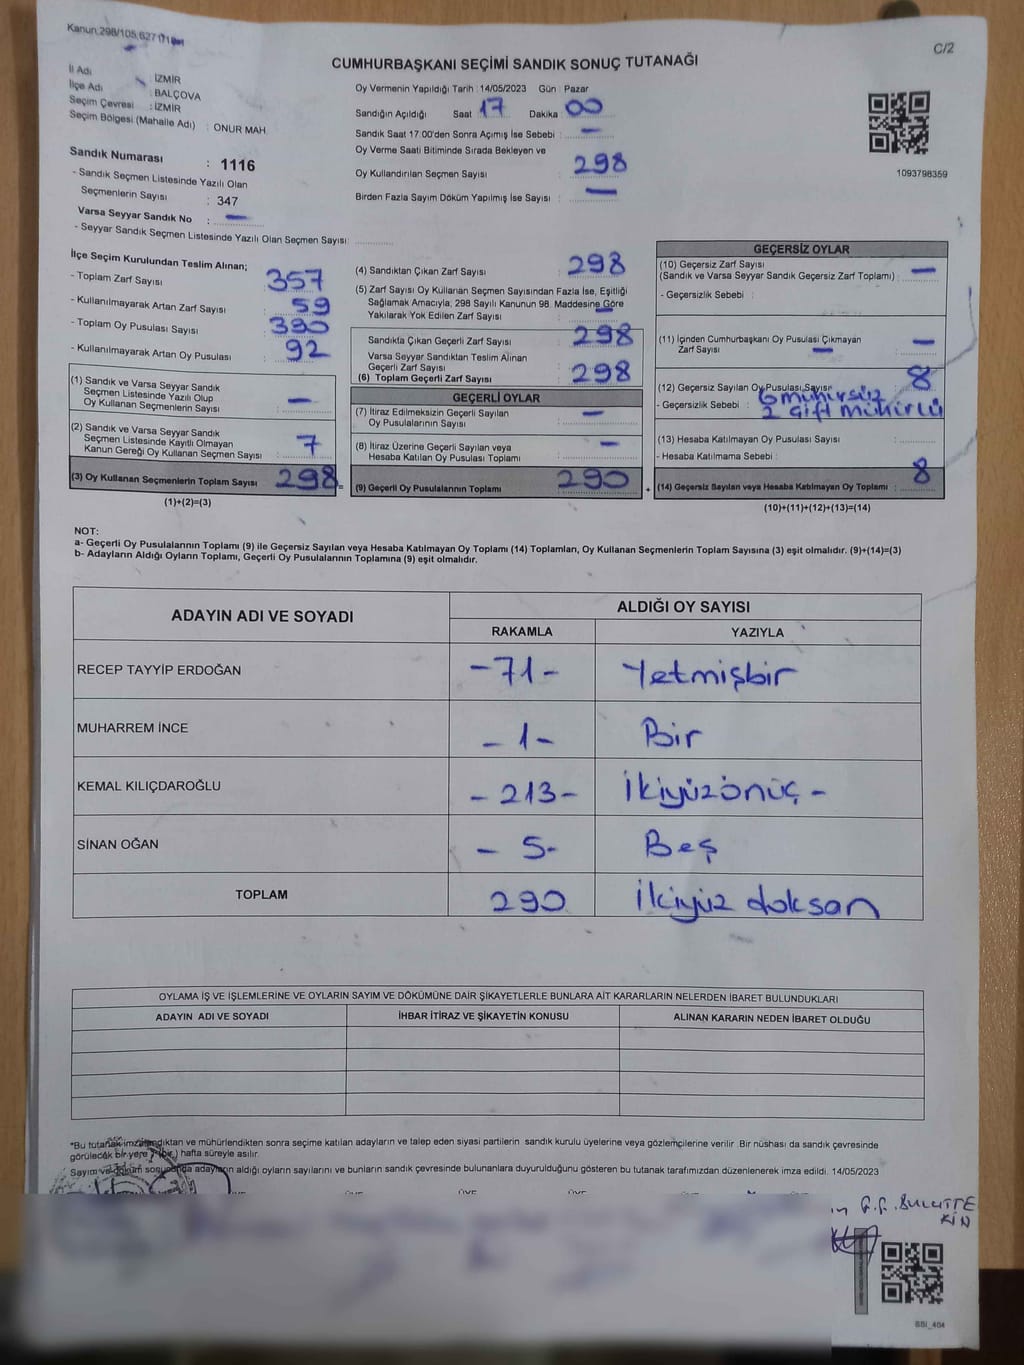 Kanun:298/105,627
C/2
CUMHURBAŞKANI SEÇİMİ SANDIK SONUÇ TUTANAĞI
İl Adı : İZMİR
İlçe Adı : BALÇOVA
Seçim Çevresi : İZMİR
Seçim Bölgesi (Mahalle Adı) : ONUR MAH.
Sandık Numarası : 1116
- Sandık Seçmen Listesinde Yazılı Olan
Seçmenlerin Sayısı : 347
Varsa Seyyar Sandık No : -
- Seyyar Sandık Seçmen Listesinde Yazılı Olan Seçmen Sayısı:
Oy Vermenin Yapıldığı Tarih : 14/05/2023 Gün : Pazar
Sandığın Açıldığı Saat : 17 Dakika : 00
Sandık Saat 17.00'den Sonra Açımış İse Sebebi : -
Oy Verme Saati Bitiminde Sırada Bekleyen ve
Oy Kullandırılan Seçmen Sayısı : 298
Birden Fazla Sayım Döküm Yapılmış İse Sayısı : -
1093798359
İlçe Seçim Kurulundan Teslim Alınan;
- Toplam Zarf Sayısı : 357
- Kullanılmayarak Artan Zarf Sayısı : 59
- Toplam Oy Pusulası Sayısı : 390
- Kullanılmayarak Artan Oy Pusulası : 92
(1) Sandık ve Varsa Seyyar Sandık
Seçmen Listesinde Yazılı Olup
Oy Kullanan Seçmenlerin Sayısı : -
(2) Sandık ve Varsa Seyyar Sandık
Seçmen Listesinde Kayıtlı Olmayan
Kanun Gereği Oy Kullanan Seçmen Sayısı : 7
(3) Oy Kullanan Seçmenlerin Toplam Sayısı : 298 =
(1)+(2)=(3)
(4) Sandıktan Çıkan Zarf Sayısı : 298
(5) Zarf Sayısı Oy Kullanan Seçmen Sayısından Fazla İse, Eşitliği
Sağlamak Amacıyla, 298 Sayılı Kanunun 98. Maddesine Göre
Yakılarak Yok Edilen Zarf Sayısı : -
Sandıkta Çıkan Geçerli Zarf Sayısı : 298
Varsa Seyyar Sandıktan Teslim Alınan
Geçerli Zarf Sayısı :
(6) Toplam Geçerli Zarf Sayısı : 298
GEÇERLİ OYLAR
(7) İtiraz Edilmeksizin Geçerli Sayılan
Oy Pusulalarının Sayısı : -
(8) İtiraz Üzerine Geçerli Sayılan veya
Hesaba Katılan Oy Pusulası Toplamı : -
(9) Geçerli Oy Pusulalarının Toplamı : 290 +
GEÇERSİZ OYLAR
(10) Geçersiz Zarf Sayısı
(Sandık ve Varsa Seyyar Sandık Geçersiz Zarf Toplamı) : -
- Geçersizlik Sebebi :
(11) İçinden Cumhurbaşkanı Oy Pusulası Çıkmayan
Zarf Sayısı : -
(12) Geçersiz Sayılan Oy Pusulası Sayısı : 8
- Geçersizlik Sebebi : 6 mühürsüz
2 çift mühürlü
(13) Hesaba Katılmayan Oy Pusulası Sayısı :
- Hesaba Katılmama Sebebi :
(14) Geçersiz Sayılan veya Hesaba Katılmayan Oy Toplamı : 8
(10)+(11)+(12)+(13)=(14)
NOT:
a- Geçerli Oy Pusulalarının Toplamı (9) ile Geçersiz Sayılan veya Hesaba Katılmayan Oy Toplamı (14) Toplamları, Oy Kullanan Seçmenlerin Toplam Sayısına (3) eşit olmalıdır. (9)+(14)=(3)
b- Adayların Aldığı Oyların Toplamı, Geçerli Oy Pusulalarının Toplamına (9) eşit olmalıdır.
ADAYIN ADI VE SOYADI
ALDIĞI OY SAYISI
RAKAMLA YAZIYLA
RECEP TAYYİP ERDOĞAN -71- Yetmişbir
MUHARREM İNCE -1- Bir
KEMAL KILIÇDAROĞLU -213- İkiyüzonüç -
SİNAN OĞAN -5- Beş
TOPLAM 290 İkiyüz doksan
OYLAMA İŞ VE İŞLEMLERİNE VE OYLARIN SAYIM VE DÖKÜMÜNE DAİR ŞİKAYETLERLE BUNLARA AİT KARARLARIN NELERDEN İBARET BULUNDUKLARI
ADAYIN ADI VE SOYADI İHBAR İTİRAZ VE ŞİKAYETİN KONUSU ALINAN KARARIN NEDEN İBARET OLDUĞU
*Bu tutanak imzalandıktan ve mühürlendikten sonra seçime katılan adayların ve talep eden siyasi partilerin sandık kurulu üyelerine veya gözlemçilerine verilir. Bir nüshası da sandık çevresinde
görülecek bir yere 7 (bir) hafta süreyle asılır.
Sayım ve döküm sonucunda adayların aldığı oyların sayılarını ve bunların sandık çevresinde bulunanlara duyurulduğunu gösteren bu tutanak tarafımızdan düzenlenerek imza edildi. 14/05/2023
SSI_404